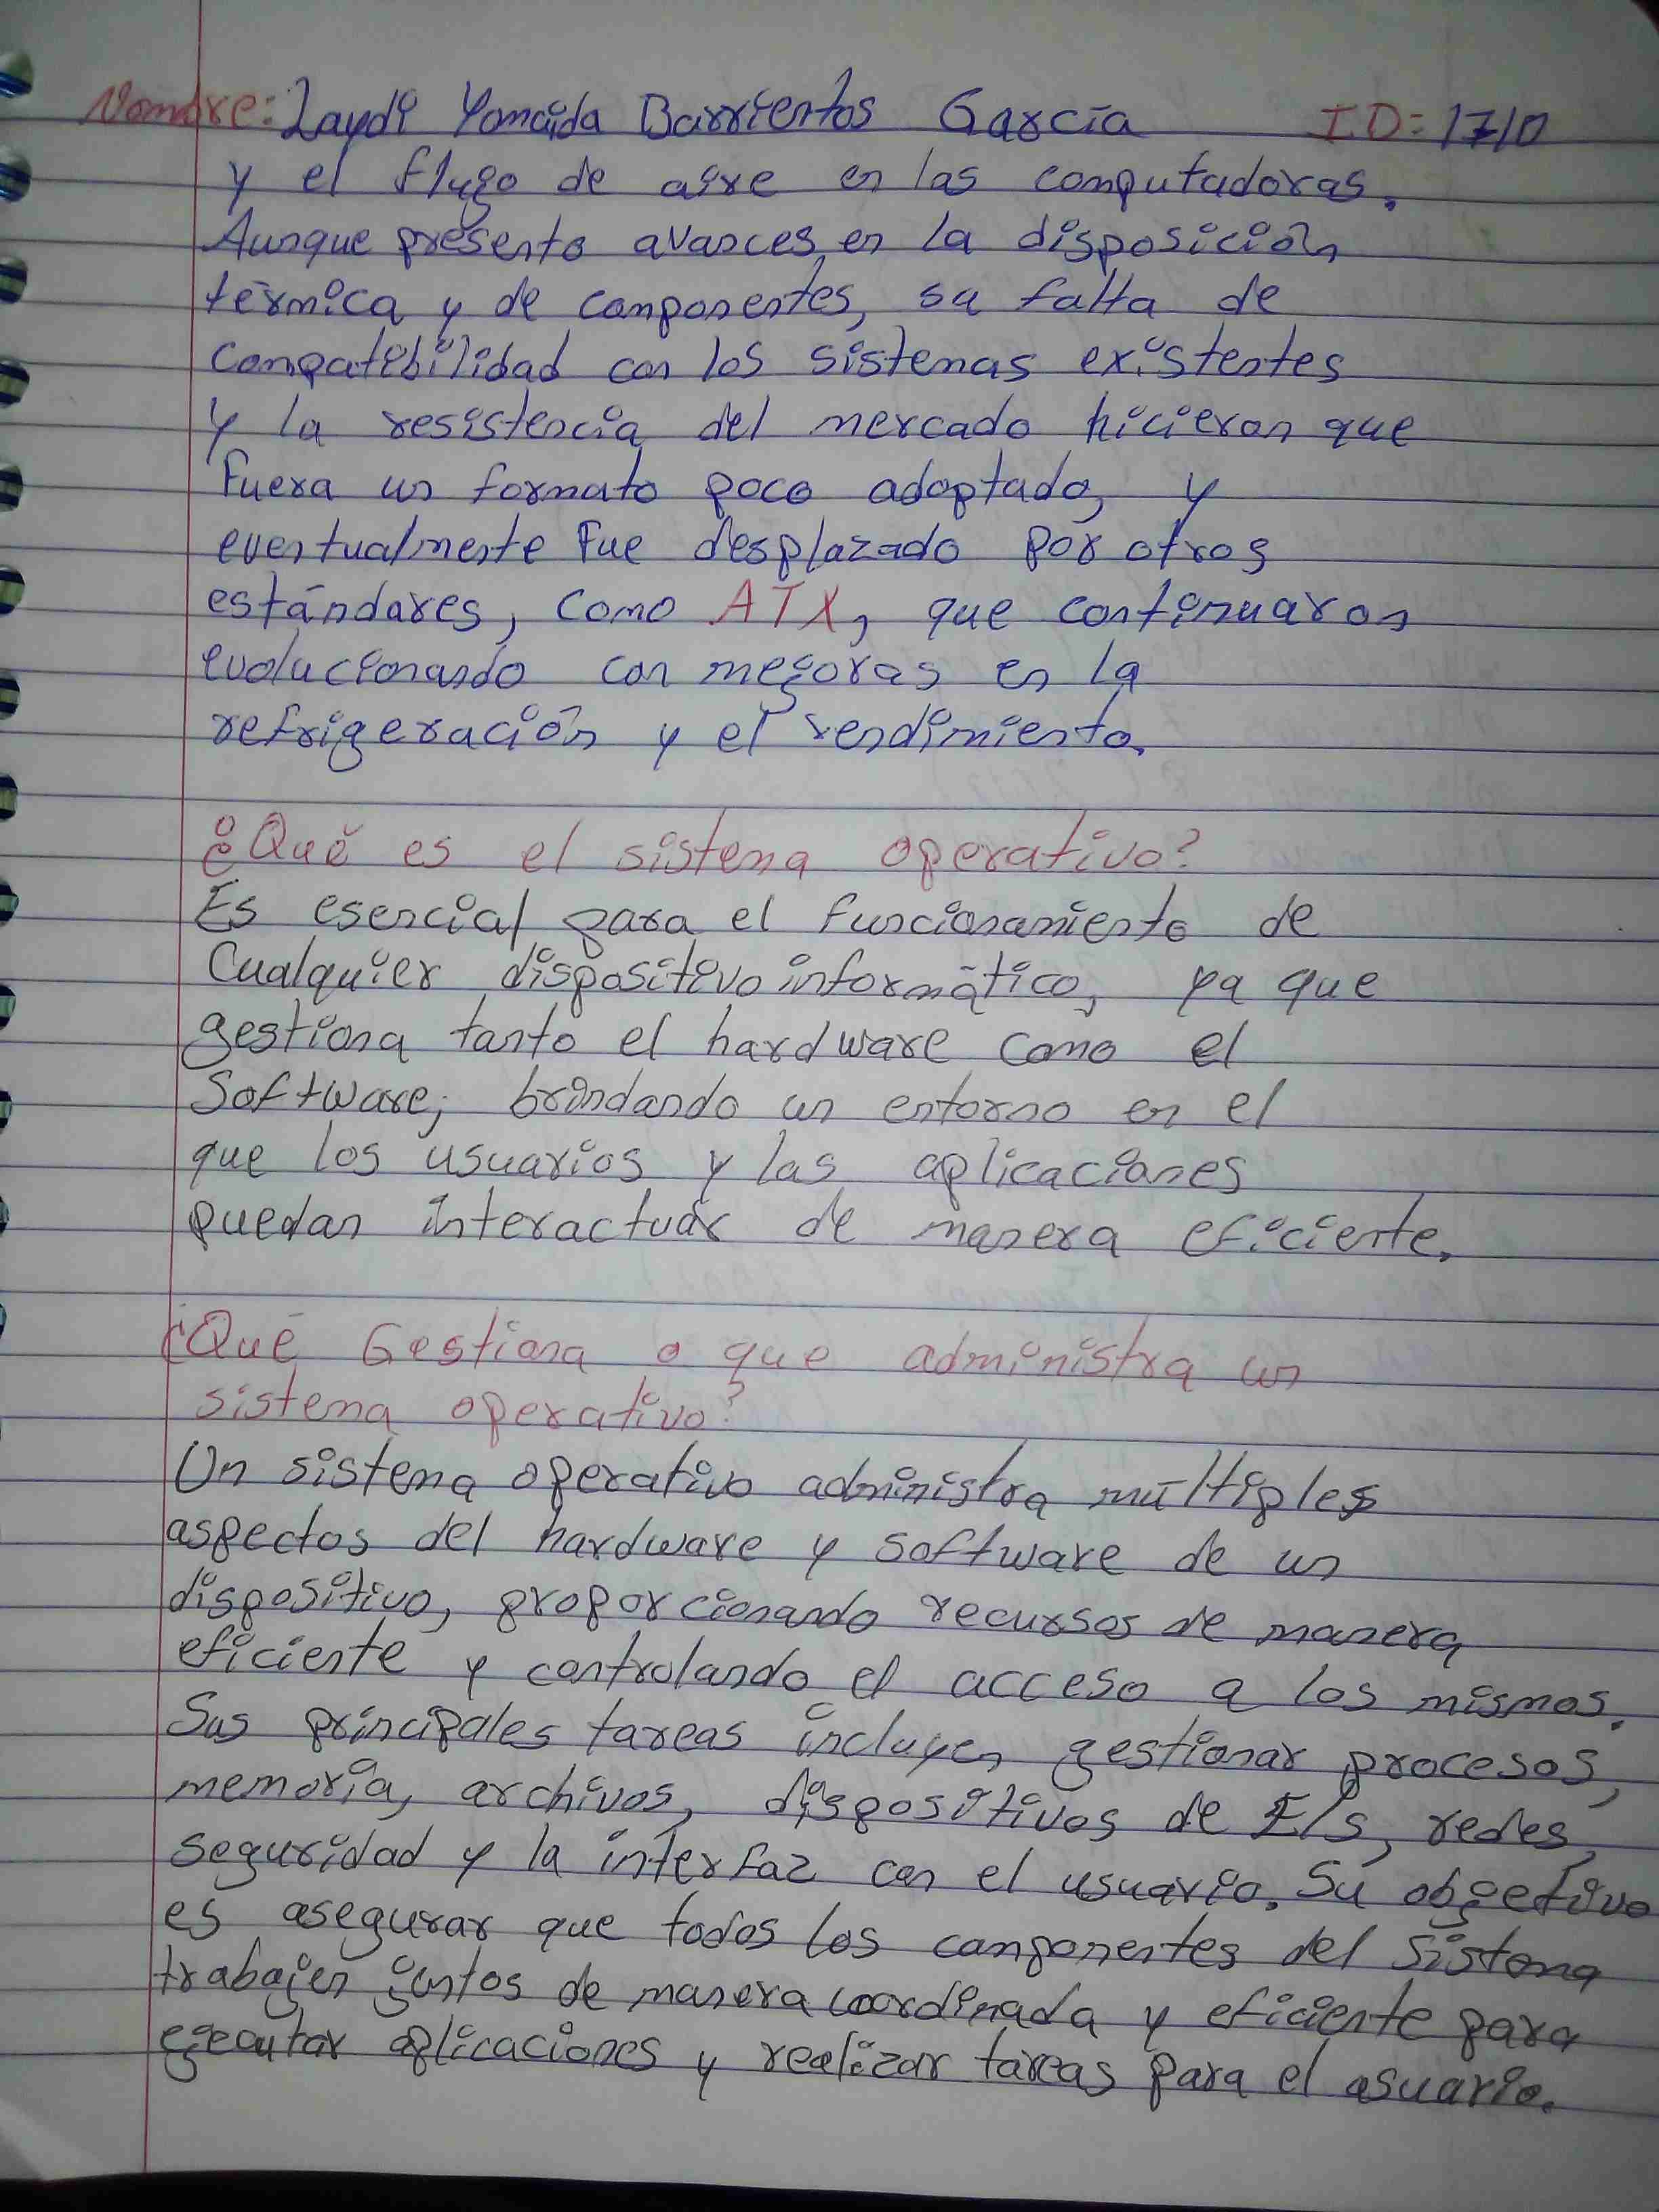 Nombre: Laydi Yomaida Barrientos García ID: 1710
y el flujo de aire en las computadoras.
Aunque presento avances en la disposición
térmica y de componentes, su falta de
compatibilidad con los sistemas existentes
y la resistencia del mercado hicieron que
Fuera un formato poco adoptado, y
eventualmente Fue desplazado por otros
estándares, como ATX, que continuaron
evolucionando con mejoras en la
refrigeración y el rendimiento.
¿Qué es el sistema operativo?
Es esencial para el funcionamiento de
Cualquier dispositivo informático, ya que
gestiona tanto el hardware como el
Software; brindando un entorno en el
que los usuarios y las aplicaciones
puedan interactuar de manera eficiente.
¿Qué Gestiona o que administra un
sistema operativo?
Un sistema operativo administra múltiples
aspectos del hardware y software de un
dispositivo, proporcionando recursos de manera
eficiente y controlando el acceso a los mismos.
Sus principales tareas incluyen gestionar procesos,
memoria, archivos, dispositivos de E/s, redes,
seguridad y la interfaz con el usuario. Su objetivo
es asegurar que todos los componentes del sistema
trabajen juntos de manera coordinada y eficiente para
ejecutar aplicaciones y realizar tareas para el usuario.